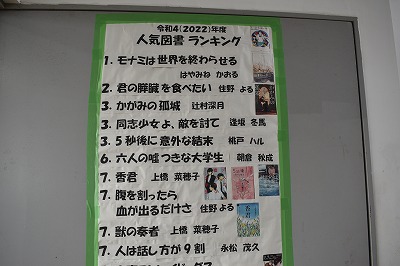 令和4(2022)年度
人気図書 ランキング
1. モナミは世界を終わらせる
はやみね かおる
2. 君の膵臓を食べたい 住野 よる
3. かがみの孤城 辻村深月
3. 同志少女よ、敵を討て 逢坂 冬馬
3. 5秒後に意外な結末 桃戸 ハル
6. 六人の嘘つきな大学生 朝倉 秋成
7. 香君 上橋 菜穂子
7. 腹を割ったら
血が出るだけさ 住野 よる
7. 獣の奏者 上橋 菜穂子
7. 人は話し方が9割 永松 茂久